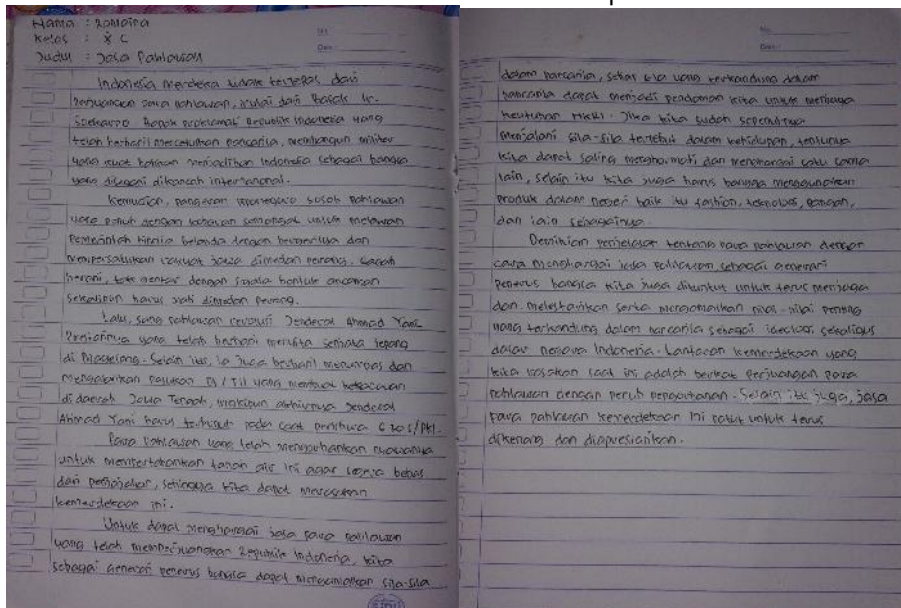 Nama : Romaina
Kelas : X C
Judul : Jasa Pahlawan
No.
Date:
Indonesia merdeka tidak terlepas dari
perjuangan para pahlawan, mulai dari Bapak Ir.
Soekarno Bapak proklamasi Republik Indonesia yang
telah berhasil mencetuskan pancasila, membangun militer
yang kuat bahkan menjadikan Indonesia sebagai bangsa
yang disegani dikancah internasional.
Kemudian, pangeran Diponegoro sosok pahlawan
yang penuh dengan kobaran semangat untuk melawan
Pemerintah Hindia Belanda dengan bergerilya dan
mempersatukan rakyat jawa dimedan perang. Gagah
berani, tak gentar dengan segala bentuk ancaman
sekalipun harus mati dimedan perang.
Lalu, sang pahlawan revolusi Jenderal Ahmad Yani
Prestasinya yang telah berhasil menyita senjata Jepang
di Magelang. Selain itu, Ia juga berhasil menumpas dan
mengalahkan pasukan DI / TII yang membuat kekacauan
di daerah Jawa Tengah, meskipun akhirnya Jenderal
Ahmad Yani harus terbunuh pada saat peristiwa G 30 S/PKI.
Para pahlawan yang telah mengorbankan nyawanya
untuk mempertahankan tanah air ini agar bebas
dari penjajahan, sehingga kita dapat merasakan
kemerdekaan ini.
Untuk dapat menghargai jasa para pahlawan
yang telah memperjuangkan Republik Indonesia, kita
sebagai generasi penerus bangsa dapat mengamalkan sila-sila
No.
Date:
dalam pancasila, setiap sila yang terkandung dalam
pancasila dapat menjadi pedoman kita untuk menjaga
keutuhan NKRI. Jika kita sudah sepenuhnya
menjalani sila-sila tersebut dalam kehidupan, tentunya
kita dapat saling menghormati dan menghargai satu sama
lain, selain itu kita juga harus bangga menggunakan
produk dalam negeri baik itu fashion, teknologi, pangan,
dan lain sebagainya.
Demikian penjelasan tentang para pahlawan dengan
cara menghargai jasa pahlawan, sebagai generasi
penerus bangsa kita juga dituntut untuk terus menjaga
dan melestarikan serta mengamalkan nilai-nilai penting
yang terkandung dalam pancasila sebagai ideologi sekaligus
dasar negara Indonesia. Lantaran kemerdekaan yang
kita rasakan saat ini adalah berkat perjuangan para
pahlawan dengan penuh pengorbanan. Selain itu juga, jasa
para pahlawan kemerdekaan ini patut untuk terus
dikenang dan diapresiasikan.